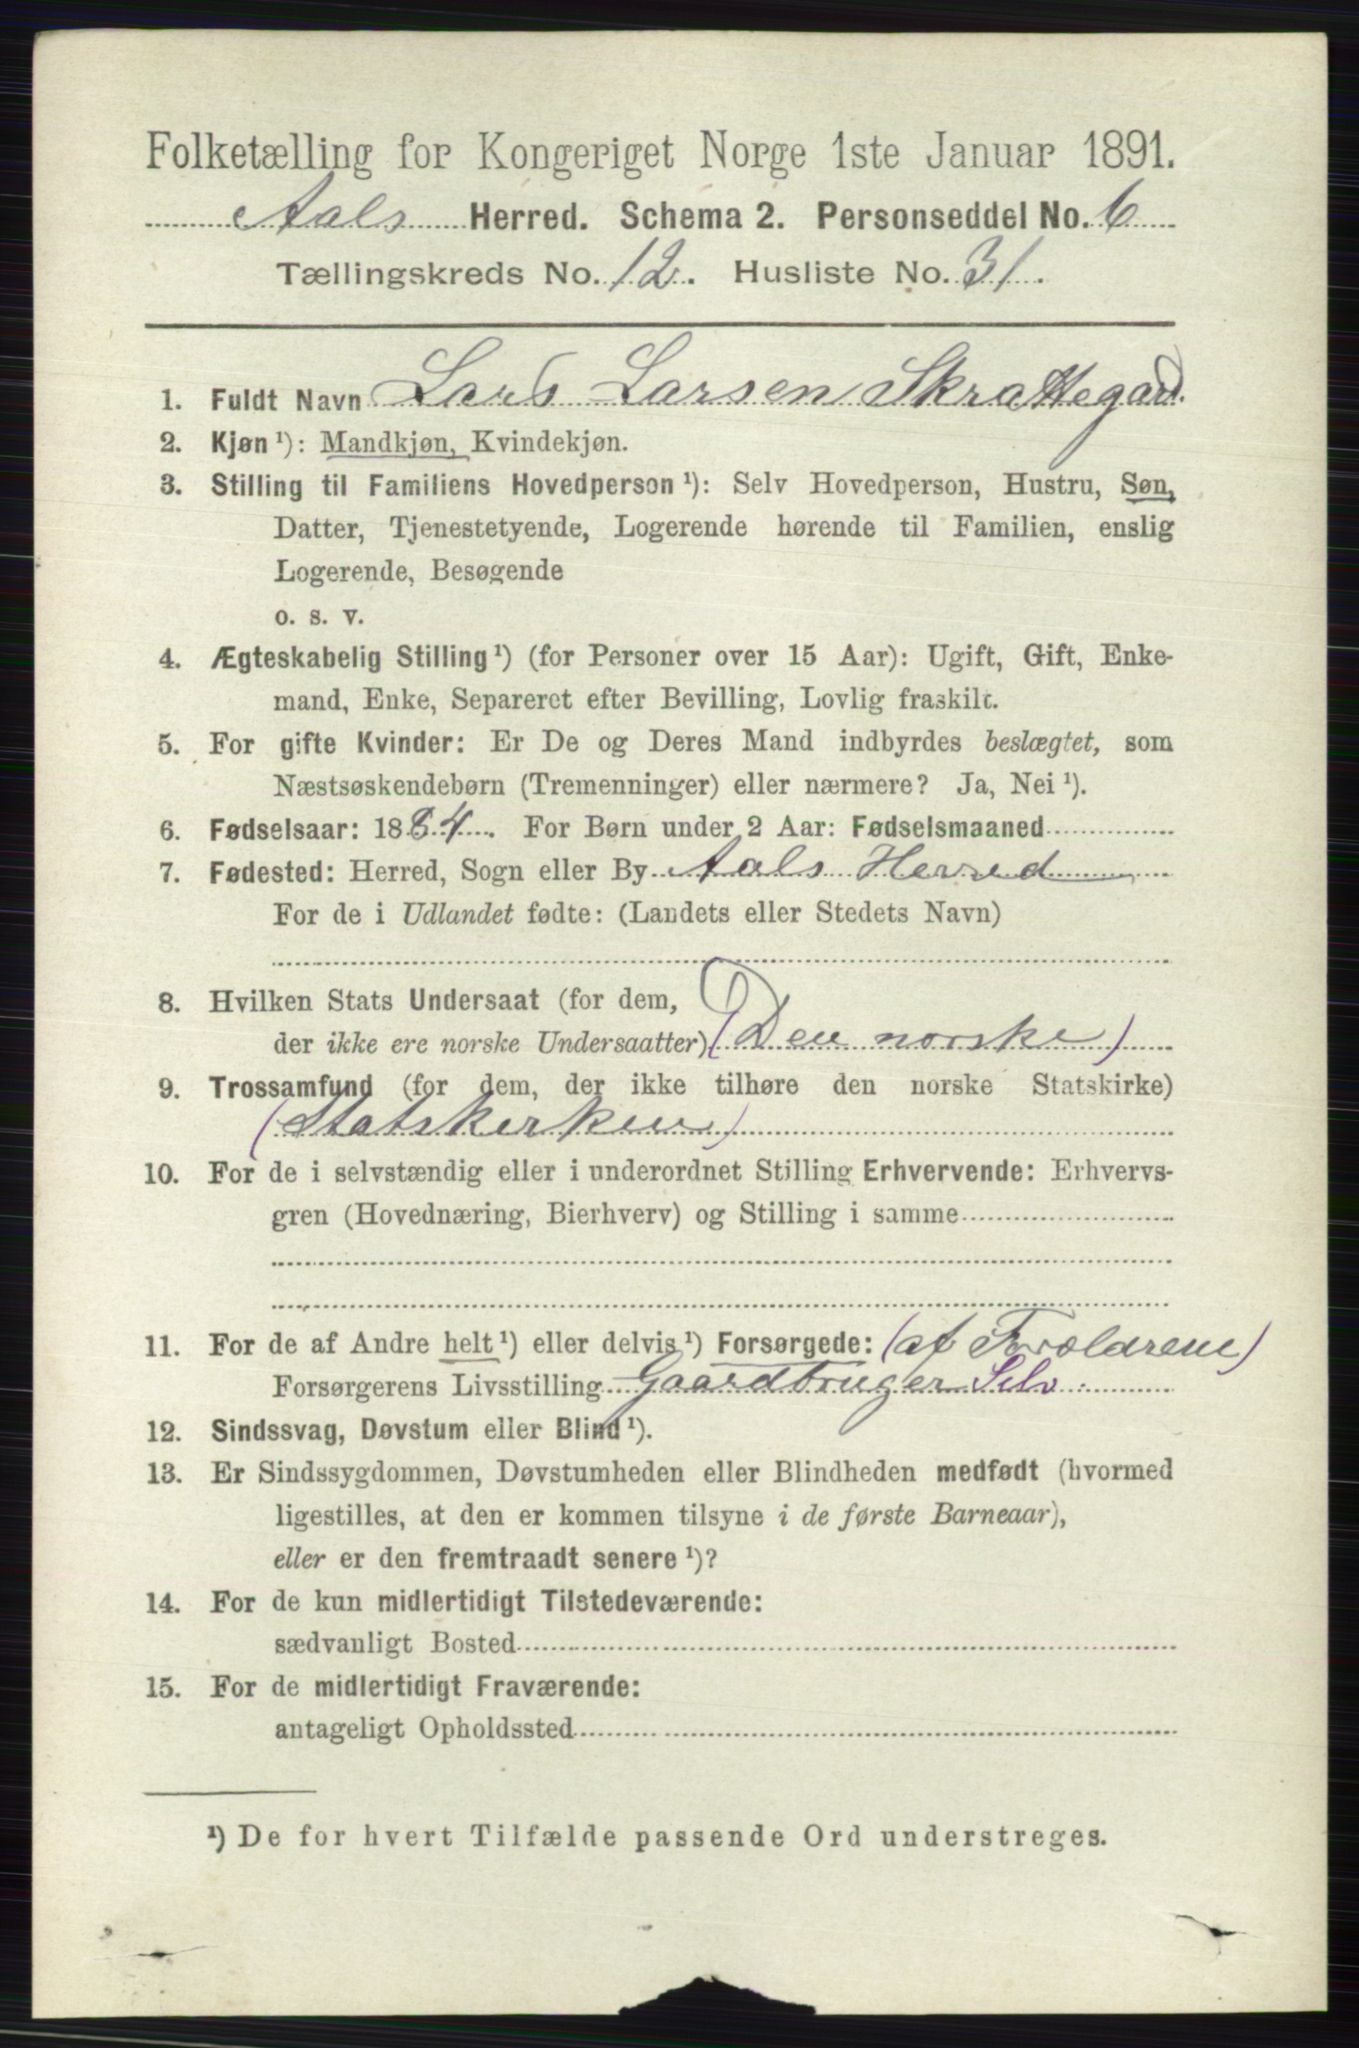 Folketælling for Kongeriget Norge 1ste Januar 1891.
Aals Herred. Schema 2. Personseddel No. 6
Tællingskreds No. 12. Husliste No. 31.
1. Fuldt Navn Lars Larsen Skrattegard.
2. Kjøn ¹): Mandkjøn, Kvindekjøn.
3. Stilling til Familiens Hovedperson ¹): Selv Hovedperson, Hustru, Søn,
Datter, Tjenestetyende, Logerende hørende til Familien, enslig
Logerende, Besøgende
o. s. v.
4. Ægteskabelig Stilling ¹) (for Personer over 15 Aar): Ugift, Gift, Enke-
mand, Enke, Separeret efter Bevilling, Lovlig fraskilt.
5. For gifte Kvinder: Er De og Deres Mand indbyrdes beslægtet, som
Næstsøskendebørn (Tremenninger) eller nærmere? Ja, Nei ¹).
6. Fødselsaar: 1884. For Børn under 2 Aar: Fødselsmaaned
7. Fødested: Herred, Sogn eller By Aals Herred
For de i Udlandet fødte: (Landets eller Stedets Navn)
8. Hvilken Stats Undersaat (for dem,
der ikke ere norske Undersaatter) (Den norske)
9. Trossamfund (for dem, der ikke tilhøre den norske Statskirke)
(Statskirken)
10. For de i selvstændig eller i underordnet Stilling Erhvervende: Erhvervs-
gren (Hovednæring, Bierhverv) og Stilling i samme
11. For de af Andre helt ¹) eller delvis ¹) Forsørgede: (af Forældrene)
Forsørgerens Livsstilling Gaardbruger Selv.
12. Sindssvag, Døvstum eller Blind ¹).
13. Er Sindssygdommen, Døvstumheden eller Blindheden medfødt (hvormed
ligestilles, at den er kommen tilsyne i de første Barneaar),
eller er den fremtraadt senere ¹)?
14. For de kun midlertidigt Tilstedeværende:
sædvanligt Bosted
15. For de midlertidigt Fraværende:
antageligt Opholdssted
¹) De for hvert Tilfælde passende Ord understreges.